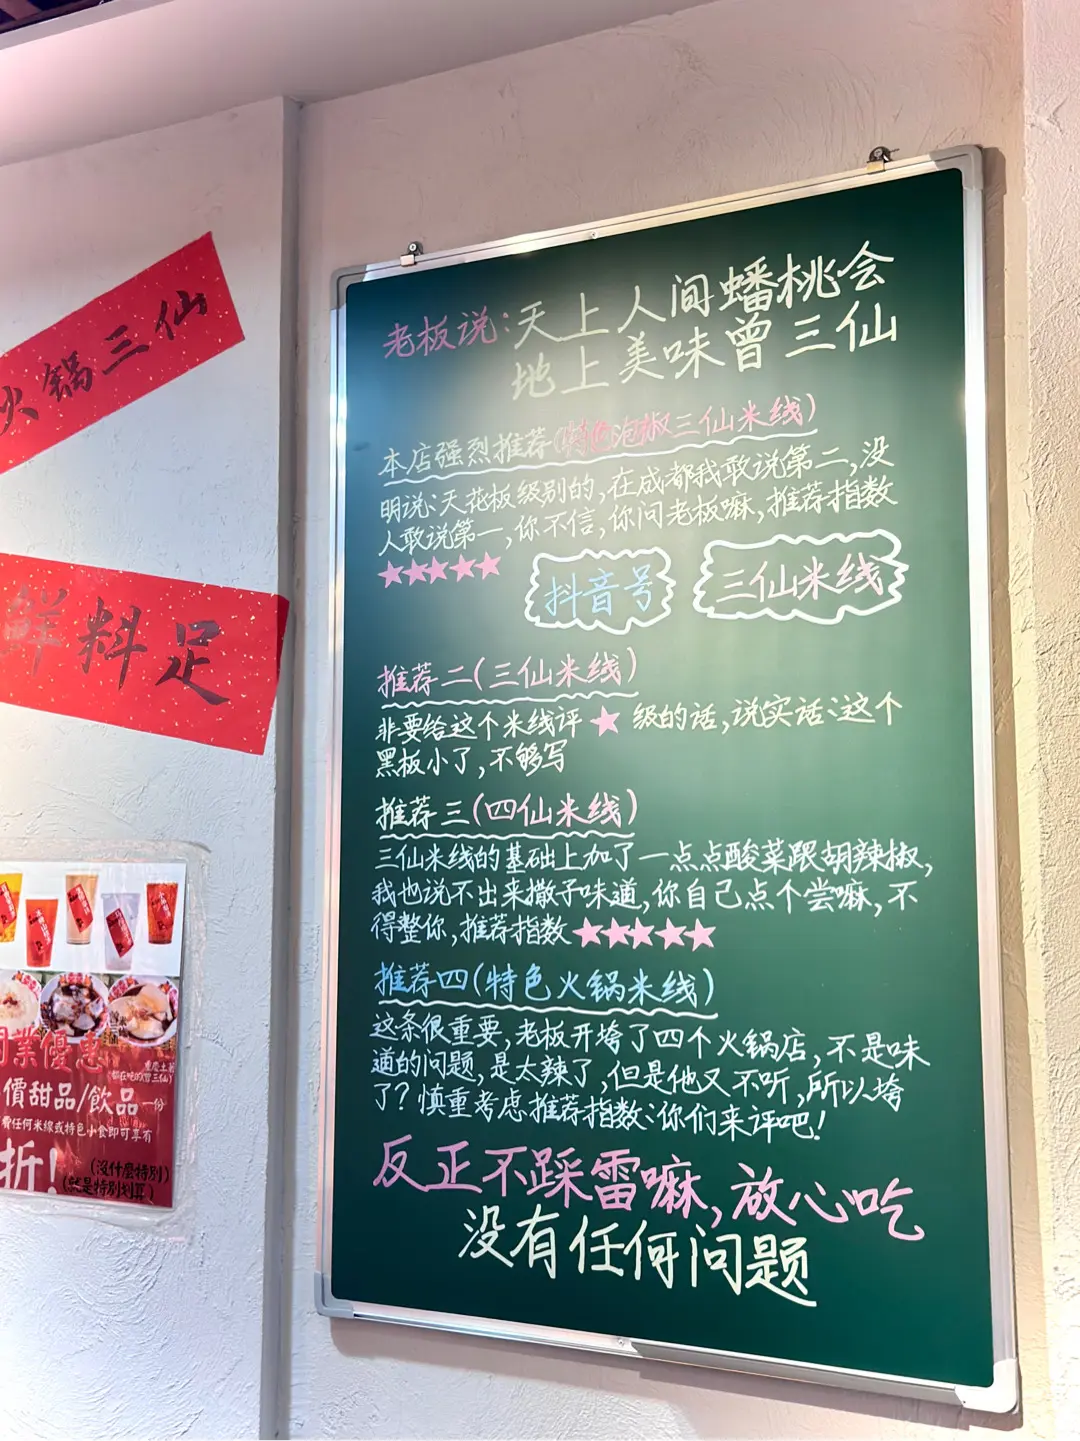 火锅三仙
鲜料足
老板说:天上人间蟠桃会
地上美味曾三仙
本店强烈推荐(特色泡椒三仙米线)
明说:天花板级别的,在成都我敢说第二,没
人敢说第一,你不信,你问老板嘛,推荐指数
★★★★★
抖音号
三仙米线
推荐二(三仙米线)
非要给这个米线评★级的话,说实话:这个
黑板小了,不够写
推荐三(四仙米线)
三仙米线的基础上加了一点点酸菜跟胡辣椒,
我也说不出来撒子味道,你自己点个尝嘛,不
得整你,推荐指数★★★★★
推荐四(特色火锅米线)
这条很重要,老板开垮了四个火锅店,不是味
道的问题,是太辣了,但是他又不听,所以垮
了?慎重考虑推荐指数:你们来评吧!
反正不踩雷嘛,放心吃
没有任何问题
開業優惠
價甜品/飲品一份
費任何米線或特色小食即可享有
折!
(沒什麼特別)
(就是特別划算)